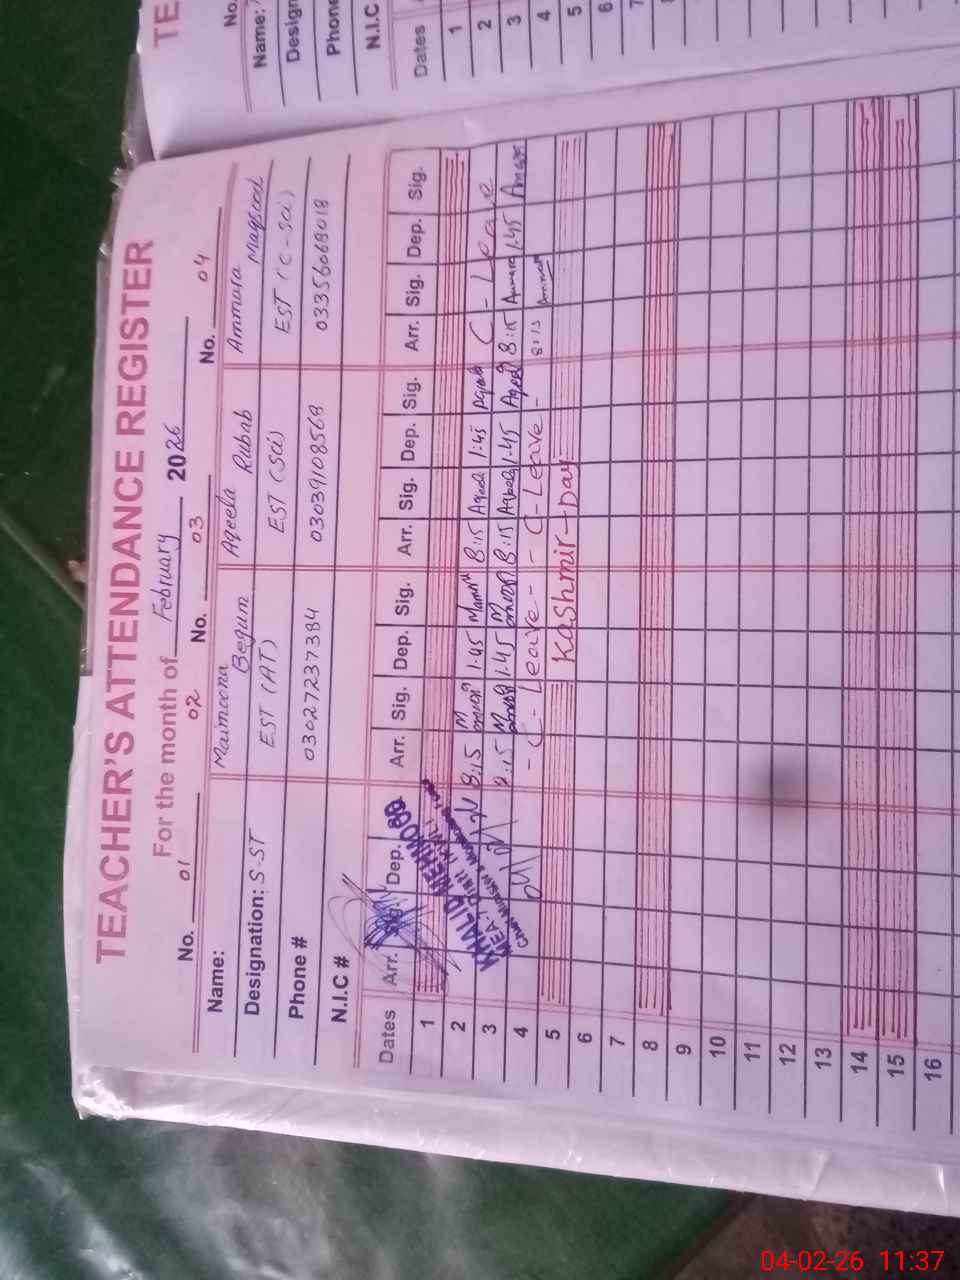 TEACHER'S ATTENDANCE REGISTER
For the month of February 2026
No. 01 No. 02 No. 03 No. 04
Name: Maimoona Begum Aqeela Rubab Ammara Maqsood
Designation: S-ST EST (AT) EST (Sci) EST (C-Sci)
Phone # 03027237384 03039108568 03356068018
N.I.C #
Dates Arr. Dep. Arr. Sig. Dep. Sig. Arr. Sig. Dep. Sig. Arr. Sig. Dep. Sig.
1
2 8:15 1.45 8:15 Aqeela 1:45 Aqeela C - Leave
3 8:15 1.45 8:15 Aqeela 1.45 Aqeela 8:15 Ammara 1.45 Amara
4 - C - Leave - - C - Leave - 8:15 Ammara
5 Kashmir-Day
6
7
8
9
10
11
12
13
14
15
16
KHALID MEHMOOD
MEA-
TE
No.
Name:
Design
Phone
N.I.C
Dates
1
2
3
4
5
6
7
04-02-26 11:37